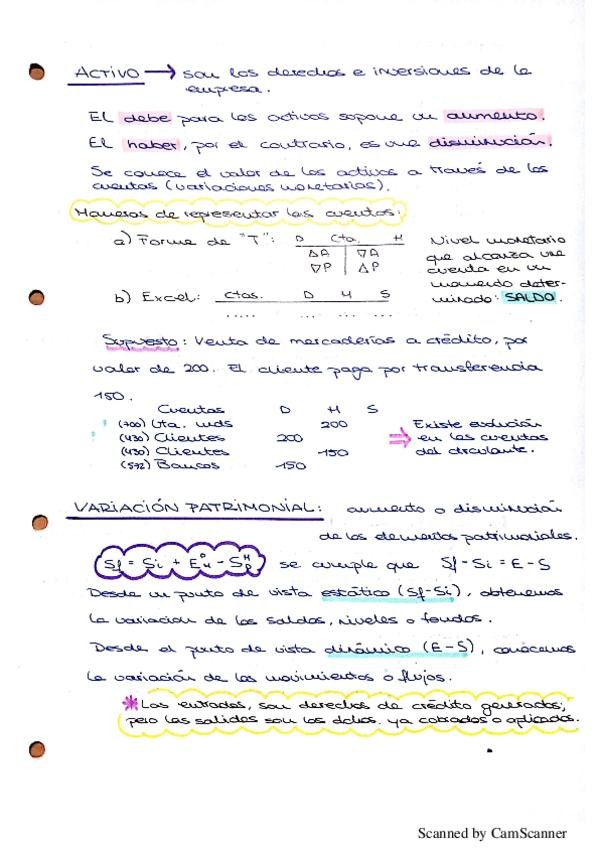 ACTIVO → son los derechos e inversiones de la
empresa.
El debe para los activos supone un aumento.
El haber, por el contrario, es una disminución.
Se conoce el valor de los activos a través de las
cuentas (variaciones monetarias).
Maneras de representar las cuentas:
a) Forma de "T": D Cta. H
△A ▽A
▽P △P
Nivel monetario
que alcanza una
cuenta en un
momento deter-
minado: SALDO.
b) Excel: Ctas. D H S
..... ... ... ...
Supuesto: Venta de mercaderías a crédito, por
valor de 200. El cliente paga por transferencia
150.
Cuentas D H S
(700) Vta. mds 200
(430) Clientes 200
(430) Clientes 150
(572) Bancos 150
⇒ Existe evolución
en las cuentas
del circulante.
VARIACIÓN PATRIMONIAL: aumento o disminución
de los elementos patrimoniales.
Sf = Si + E - S se cumple que Sf - Si = E - S
Desde un punto de vista estático (Sf-Si), obtenemos
la variación de los saldos, niveles o fondos.
Desde el punto de vista dinámico (E-S), conocemos
la variación de los movimientos o flujos.
* Las entradas, son derechos de crédito generados;
pero las salidas son los dchos. ya cobrados o aplicados.
Scanned by CamScanner